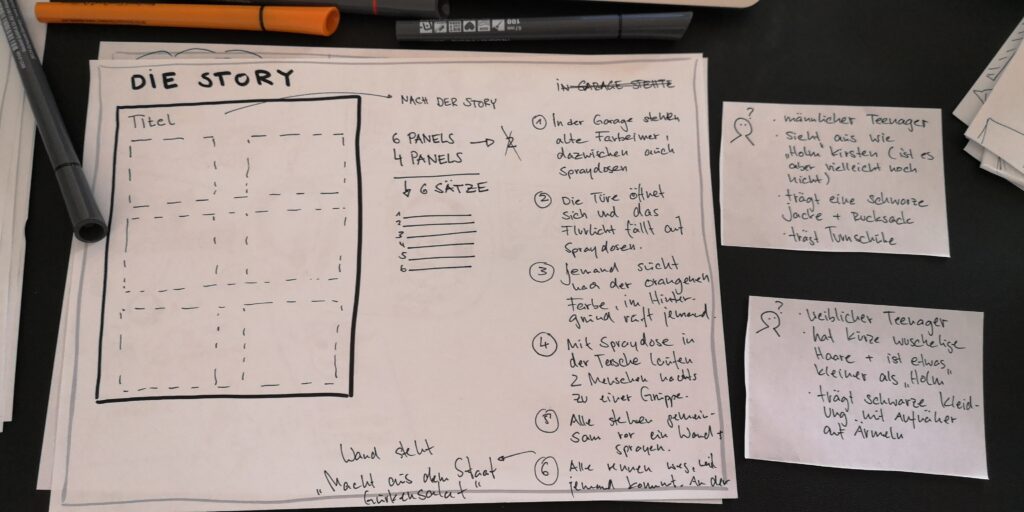 DIE STORY
Titel
NACH DER STORY
6 PANELS → 2
4 PANELS
↓ 6 SÄTZE
1
2
3
4
5
6
Wand steht
"Macht aus dem Staat
Gurkensalat"
in GARAGE STEHTE
① In der Garage stehen
alte Farbeimer,
dazwischen auch
Spraydosen
② Die Türe öffnet
sich und das
Flurlicht fällt auf
Spraydosen.
③ Jemand sucht
nach der orangenen
Farbe, im Hinter-
grund ruft jemand.
④ Mit Spraydose in
der Tasche laufen
2 Menschen nachts
zu einer Gruppe.
⑤ Alle stehen gemein-
sam vor ein Wand +
sprayen.
⑥ Alle rennen weg, weil
jemand kommt. An der
?
· männlicher Teenager
· Sieht aus wie
"Holm" Kirsten (ist es
aber vielleicht noch
nicht)
· trägt eine schwarze
Jacke + Rucksack
· trägt Turnschuhe
?
· weiblicher Teenager
· hat kurze wuschelige
Haare + ist etwas
kleiner als "Holm"
· trägt schwarze Kleid-
ung mit Aufnäher
auf Ärmeln